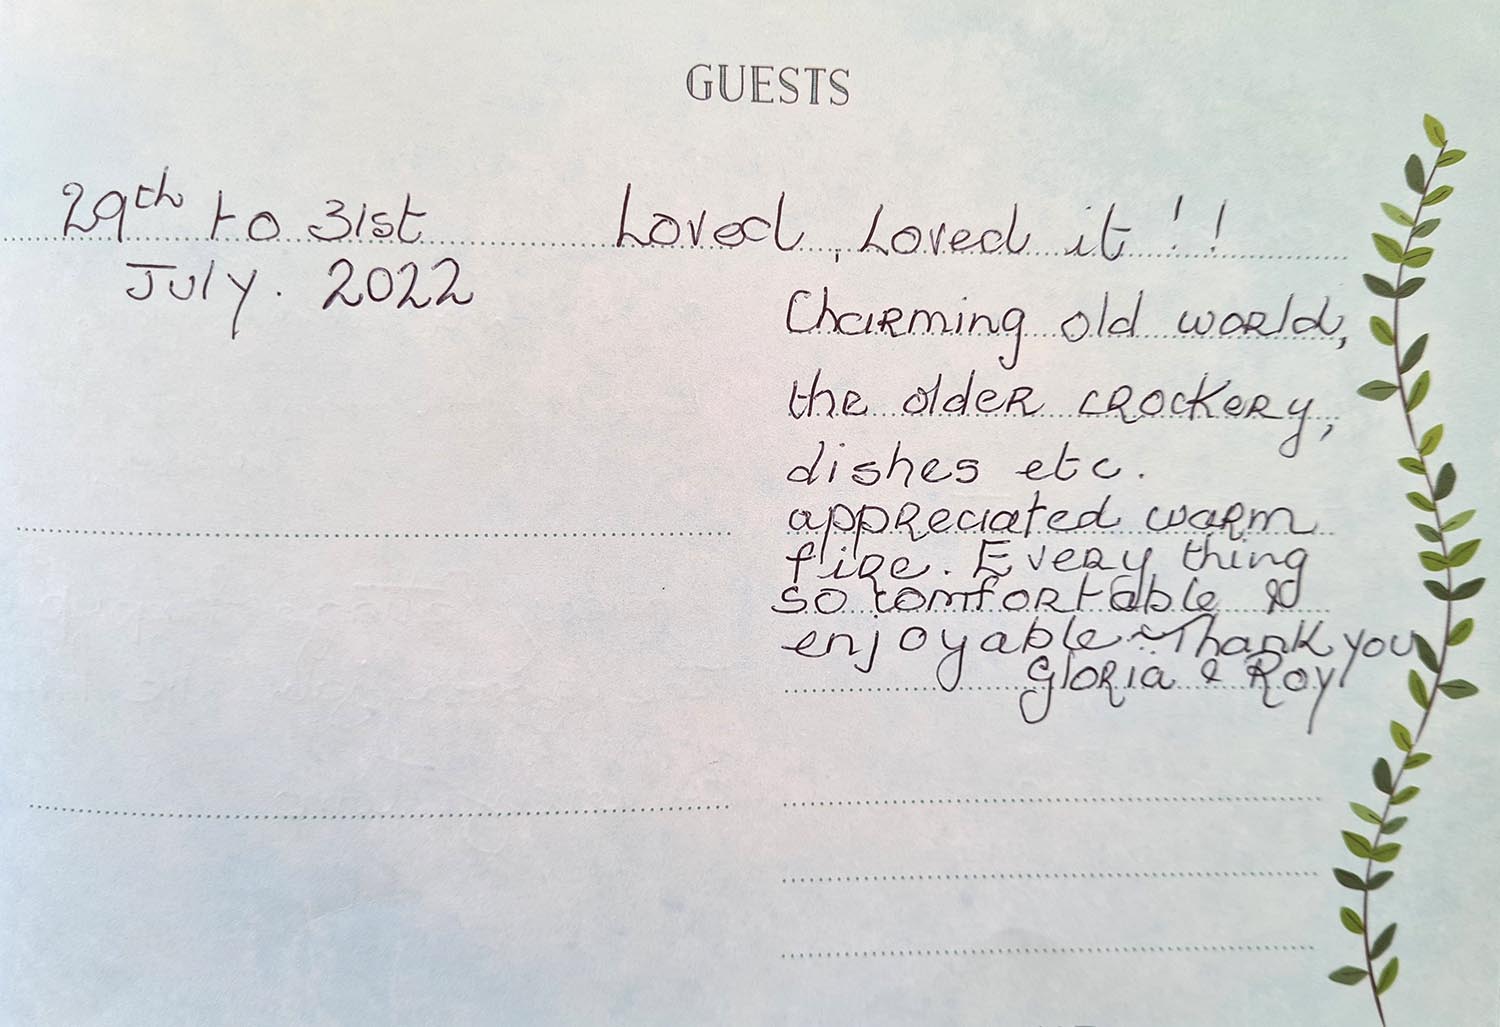 GUESTS
29th to 31st
July. 2022
Loved, Loved it!!
Charming old world,
the older crockery,
dishes etc.
appreciated warm
fire. Every thing
so comfortable &
enjoyable ~ Thank you
Gloria & Roy